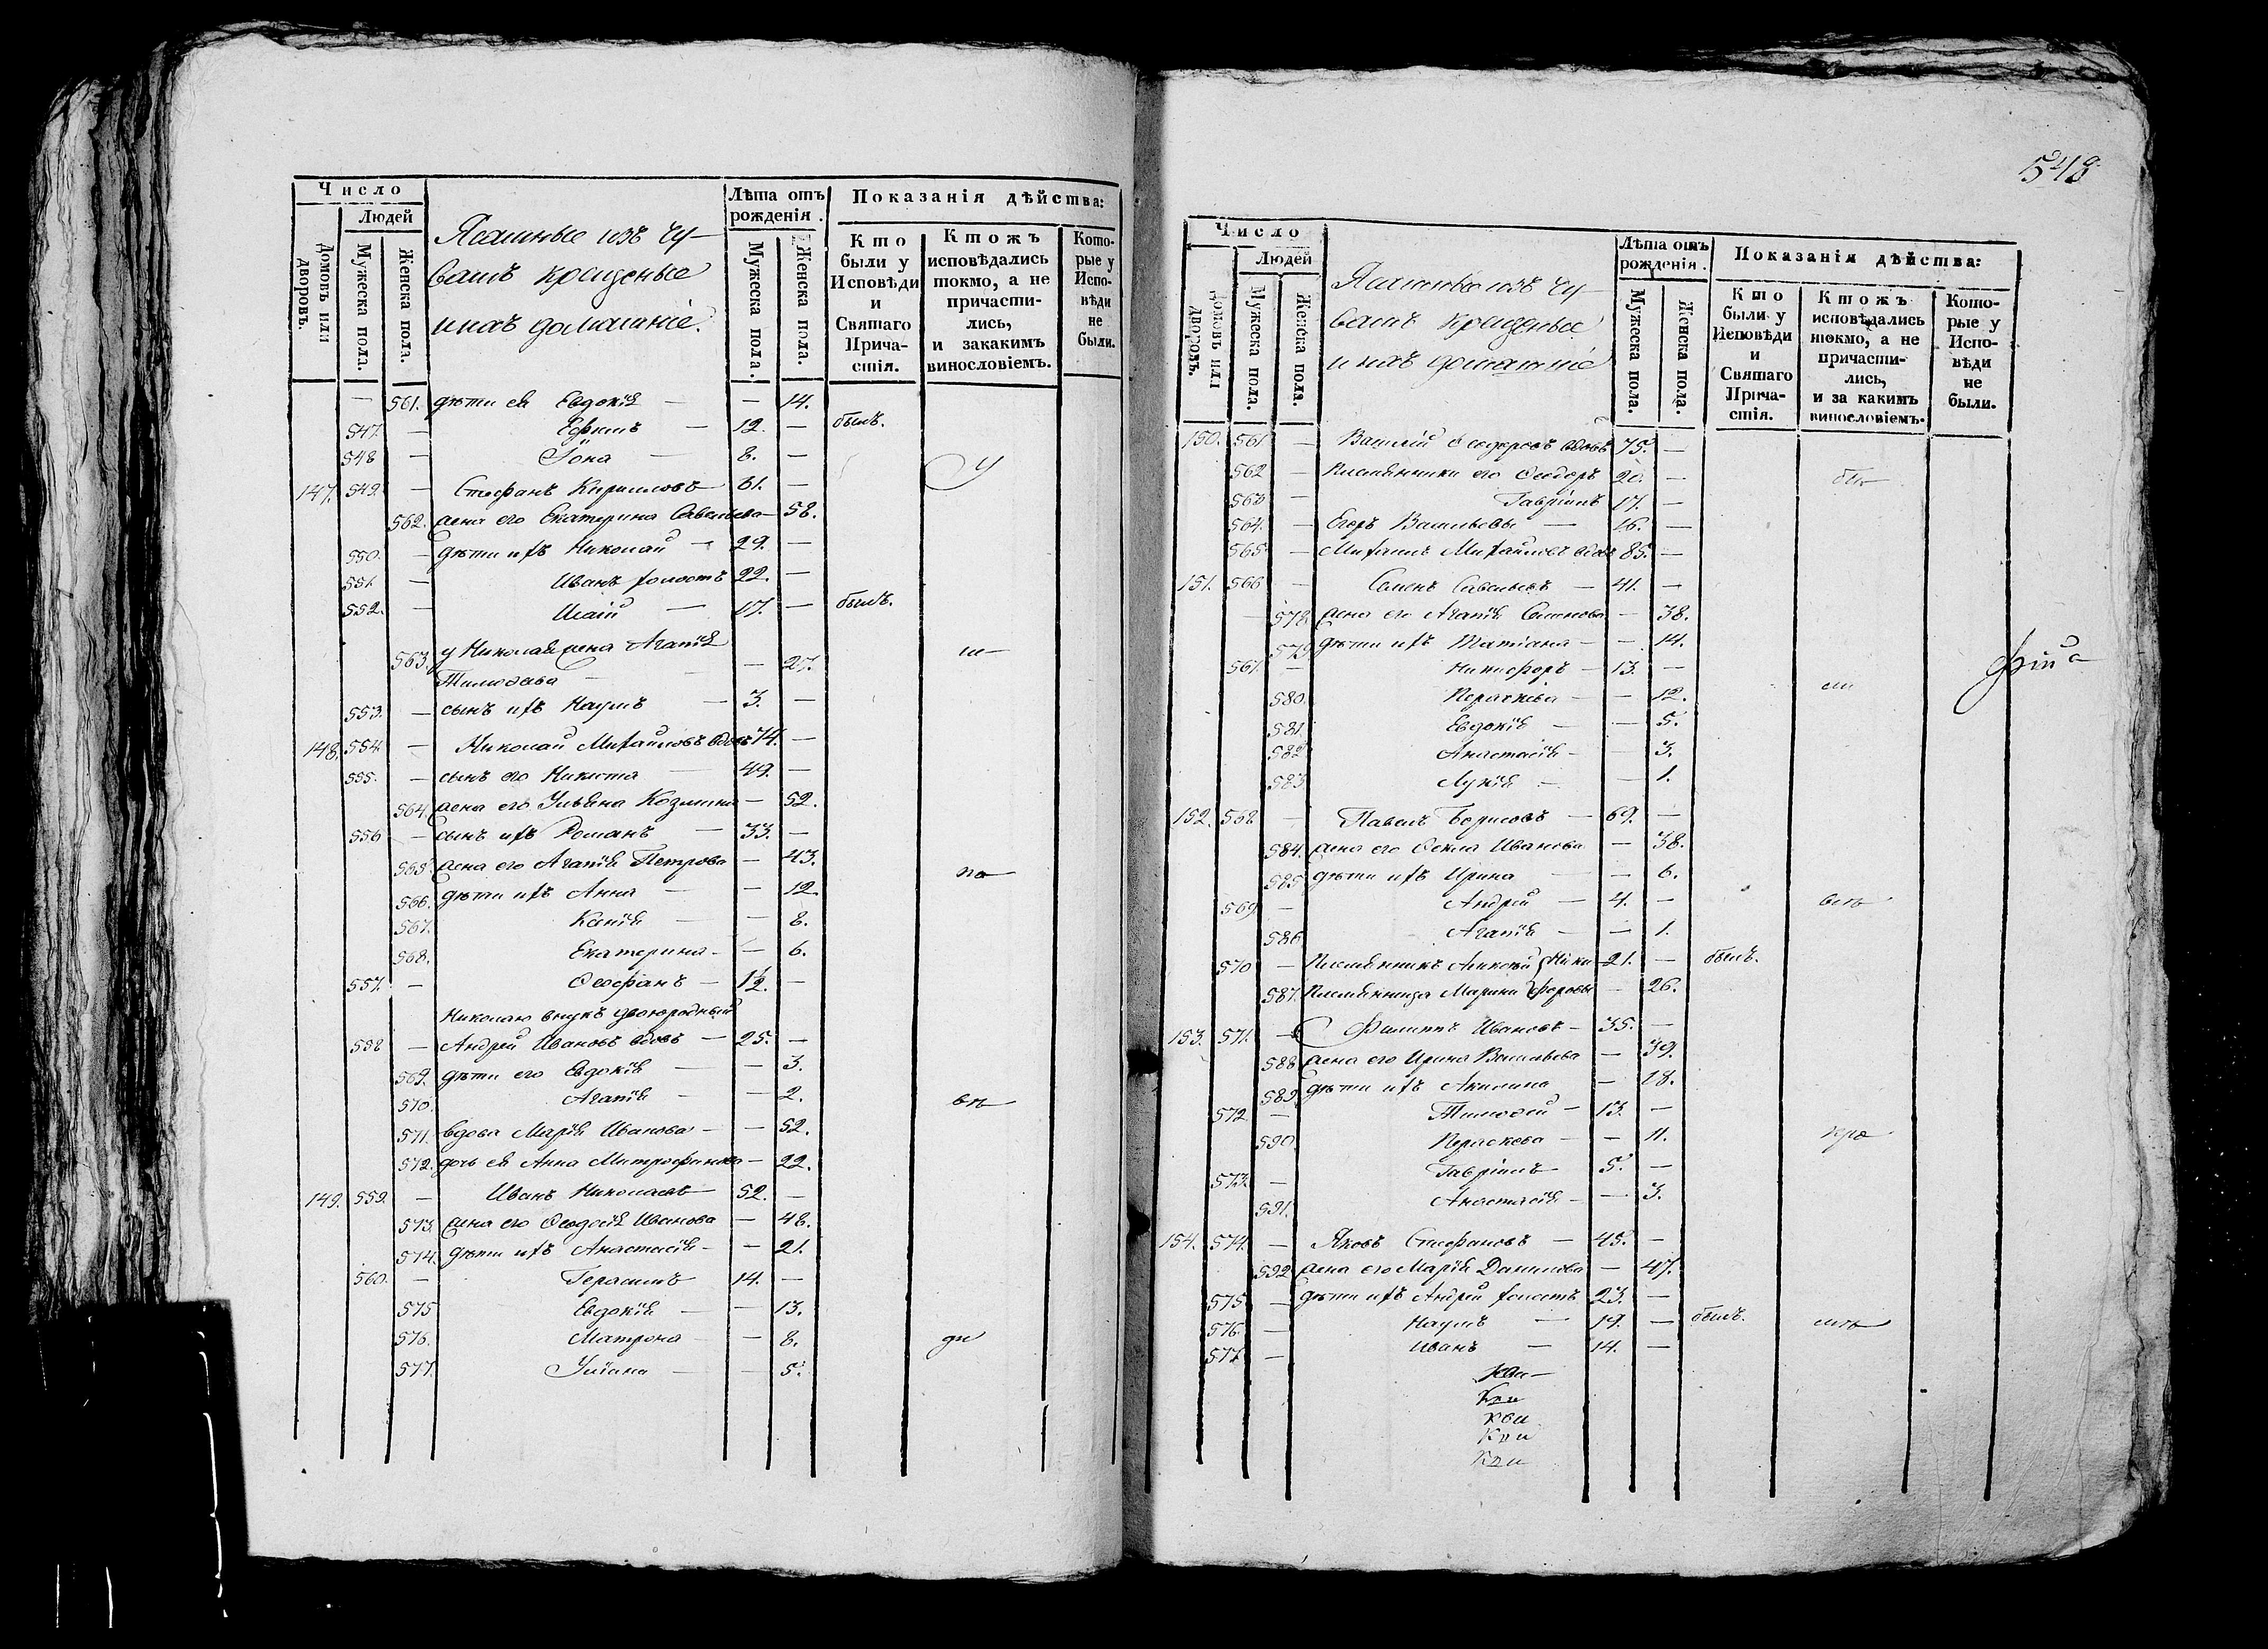 Число
Людей
Домовъ или дворовъ.
Мужеска пола.
Женска пола.
Ясашные изъ чу-
вашъ крещеные
и ихъ домашніе.
Лѣта отъ рожденія.
Мужеска пола.
Женска пола.
Показанія дѣйства:
Кто были у Исповѣди и Святаго Прича-стія.
Ктожъ исповѣдались токмо, а не причасти-лись, и закакимъ винословіемъ.
Кото-рые у Испо-вѣди не были.
— 561. дѣти ея Евдокія — — 14.
547. — Ефимъ — 12. — былъ.
548 — Іона — 8. —
147. 549. — Стефанъ Кириловъ 61. — У
562. жена его Екатерина Савельева — 58.
550. — дѣти ихъ Николай — 29. —
551. — Иванъ холостъ 22. —
552. — Исаій — 17. — былъ.
563. у Николая жена Агапія — 27.
Тимоѳева —
553. — сынъ ихъ Наумъ — 3. —
148. 554 — Николай Михайловъ вдовъ 74. —
555. — сынъ его Никита — 49. —
564. жена его Ульяна Козмина — 52.
556 — сынъ ихъ Романъ — 33. —
565. жена его Агапія Петрова — 43. по
566. дѣти ихъ Анна — — 12.
567. Ксенія — — 8.
568. Екатерина — — 6.
557. — Ѳеофанъ — 1½. —
Николаю внукъ двоюродный
558 — Андрей Ивановъ вдовъ — 25. —
569. дѣти его Евдокія — — 3.
570. Агапія — — 2.
571. вдова Марія Иванова — — 52.
572. дочь ея Анна Митрофанова — 22.
149. 559. — Иванъ Николаевъ 52. —
573. жена его Ѳеодосія Иванова — 48.
574. дѣти ихъ Анастасія — — 21.
560. — Герасимъ 14. —
575 Евдокія — — 13.
576. Матрона — — 8. ди
577. Уліана — — 5.
548
Число
Людей
Домовъ или дворовъ.
Мужеска пола.
Женска пола.
Ясашные изъ чу-
вашъ крещеные
и ихъ домашніе
Лѣта отъ рожденія.
Мужеска пола.
Женска пола.
Показанія дѣйства:
Кто были у Исповѣди и Святаго Прича-стія.
Ктожъ исповѣдались токмо, а не причасти-лись, и за какимъ винословіемъ.
Кото-рые у Испо-вѣди не были.
150. 561 — Василій Ѳеодоровъ вдовъ 75. —
562 — Племянники его Ѳеодоръ 20. —
563 — Гавріилъ 17. —
564. — Егоръ Васильевы — 16. —
565 — Михаилъ Михайловъ вдовъ 85. —
151. 566 — Семенъ Савельевъ — 41. —
578. жена его Агапія Семенова — 38.
579 дѣти ихъ Татіана — — 14.
567. — Никифоръ — 13. —
580. Параскева — — 12.
581. Евдокія — — 5.
582 Анастасія — — 3.
583 Лукія — — 1.
152. 568 — Павелъ Борисовъ — 69. —
584. жена его Ѳекла Иванова — 38.
585 дѣти ихъ Ирина — — 6.
569 — Андрей — 4. —
586 Агапія — — 1.
570 — Племянникъ Алексій Ники 21. — былъ.
587. Племянница Марина форовы — 26.
153. 571. — Филиппъ Ивановъ — 35. —
588 жена его Ирина Васильева — 39.
589. дѣти ихъ Акилина — 18.
572 — Тимоѳей — 13. —
590. Параскева — — 11.
573. — Гавріилъ 5. —
591. Анастасія — — 3.
154. 574. — Яковъ Стефановъ — 45. —
592 жена его Марія Данилова — 47.
575 — дѣти ихъ Андрей холостъ 23. —
576 — Наумъ — 19. — былъ.
577 — Иванъ — 14. —